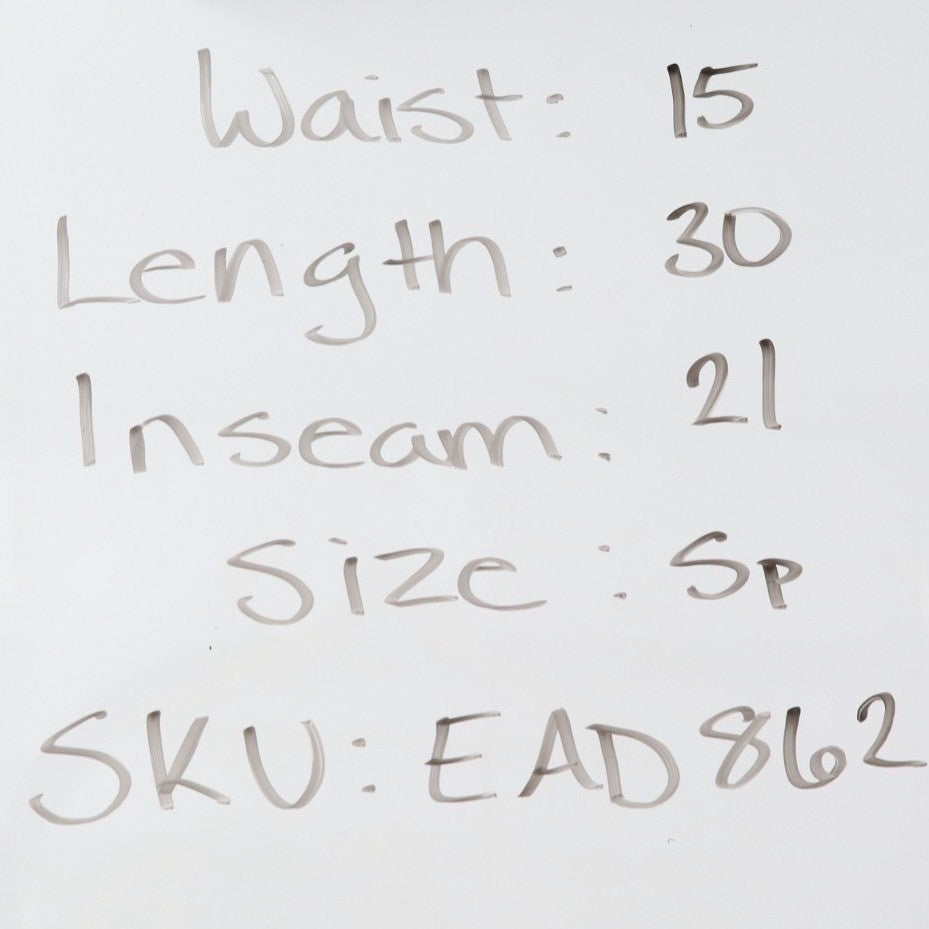 Waist: 15
Length: 30
Inseam: 21
Size: Sp
SKU: EAD862